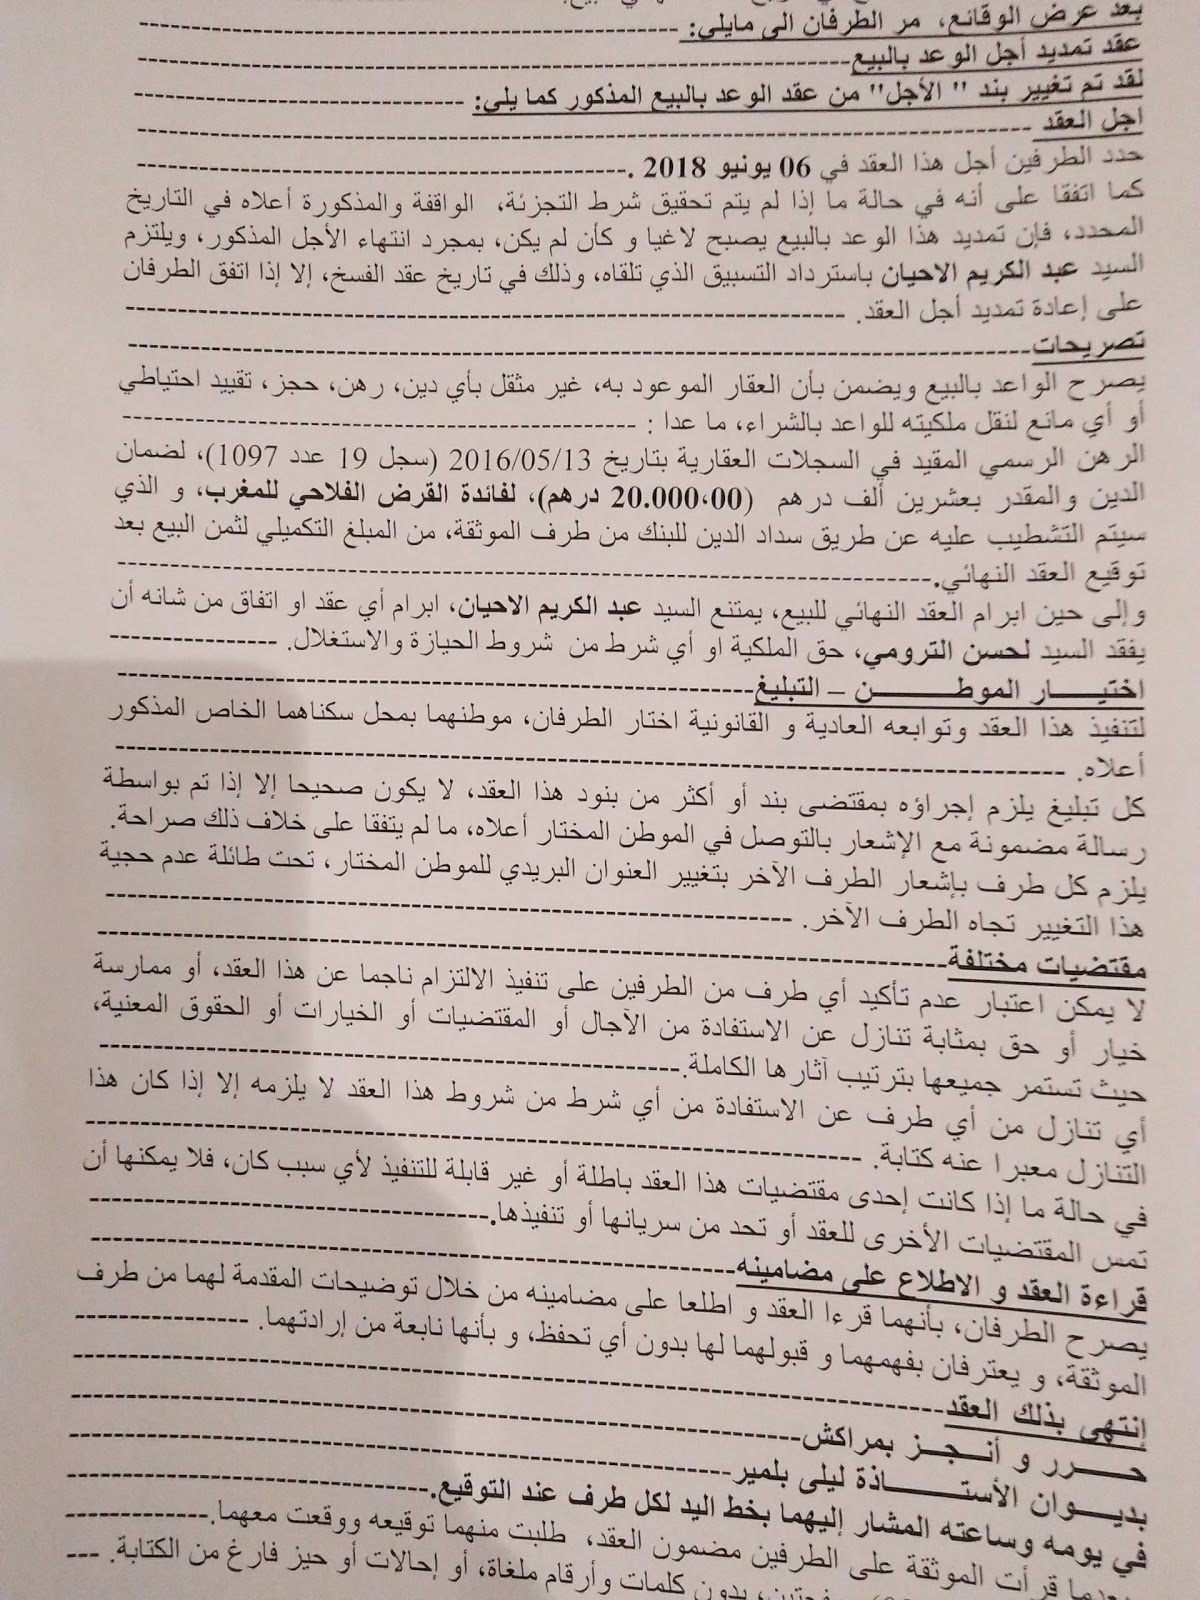 بعد عرض الوقائع، مر الطرفان الى مايلي: ---
عقد تمديد أجل الوعد بالبيع---
لقد تم تغيير بند " الأجل" من عقد الوعد بالبيع المذكور كما يلي: ---
اجل العقد ---
حدد الطرفين أجل هذا العقد في 06 يونيو 2018 .---
كما اتفقا على أنه في حالة ما إذا لم يتم تحقيق شرط التجزئة، الواقفة والمذكورة أعلاه في التاريخ
المحدد، فإن تمديد هذا الوعد بالبيع يصبح لاغيا و كأن لم يكن، بمجرد انتهاء الأجل المذكور، ويلتزم
السيد عبد الكريم الاحيان باسترداد التسبيق الذي تلقاه، وذلك في تاريخ عقد الفسخ، إلا إذا اتفق الطرفان
على إعادة تمديد أجل العقد. ---
تصريحات---
يصرح الواعد بالبيع ويضمن بأن العقار الموعود به، غير مثقل بأي دين، رهن، حجز، تقييد احتياطي
أو أي مانع لنقل ملكيته للواعد بالشراء، ما عدا : ---
الرهن الرسمي المقيد في السجلات العقارية بتاريخ 2016/05/13 (سجل 19 عدد 1097)، لضمان
الدين والمقدر بعشرين ألف درهم (20.000،00 درهم)، لفائدة القرض الفلاحي للمغرب، و الذي
سيتم التشطيب عليه عن طريق سداد الدين للبنك من طرف الموثقة، من المبلغ التكميلي لثمن البيع بعد
توقيع العقد النهائي.---
وإلى حين ابرام العقد النهائي للبيع، يمتنع السيد عبد الكريم الاحيان، ابرام أي عقد او اتفاق من شانه أن
يفقد السيد لحسن الترومي، حق الملكية او أي شرط من شروط الحيازة والاستغلال. ---
اختيـــار الموطـــــن – التبليغ---
لتنفيذ هذا العقد وتوابعه العادية و القانونية اختار الطرفان، موطنهما بمحل سكناهما الخاص المذكور
أعلاه. ---
كل تبليغ يلزم إجراؤه بمقتضى بند أو أكثر من بنود هذا العقد، لا يكون صحيحا إلا إذا تم بواسطة
رسالة مضمونة مع الإشعار بالتوصل في الموطن المختار أعلاه، ما لم يتفقا على خلاف ذلك صراحة.
يلزم كل طرف بإشعار الطرف الآخر بتغيير العنوان البريدي للموطن المختار، تحت طائلة عدم حجية
هذا التغيير تجاه الطرف الآخر. ---
مقتضيات مختلفة---
لا يمكن اعتبار عدم تأكيد أي طرف من الطرفين على تنفيذ الالتزام ناجما عن هذا العقد، أو ممارسة
خيار أو حق بمثابة تنازل عن الاستفادة من الآجال أو المقتضيات أو الخيارات أو الحقوق المعنية،
حيث تستمر جميعها بترتيب آثارها الكاملة.---
أي تنازل من أي طرف عن الاستفادة من أي شرط من شروط هذا العقد لا يلزمه إلا إذا كان هذا
التنازل معبرا عنه كتابة. ---
في حالة ما إذا كانت إحدى مقتضيات هذا العقد باطلة أو غير قابلة للتنفيذ لأي سبب كان، فلا يمكنها أن
تمس المقتضيات الأخرى للعقد أو تحد من سريانها أو تنفيذها.---
قراءة العقد و الاطلاع على مضامينه---
يصرح الطرفان، بأنهما قرءا العقد و اطلعا على مضامينه من خلال توضيحات المقدمة لهما من طرف
الموثقة، و يعترفان بفهمهما و قبولهما لها بدون أي تحفظ، و بأنها نابعة من إرادتهما. ---
إنتهى بذلك العقد---
حــــرر و أنــجــز بمراكش---
بديـــوان الأستـــــاذة ليلى بلمير---
في يومه وساعته المشار إليهما بخط اليد لكل طرف عند التوقيع.---
بعدما قرأت الموثقة على الطرفين مضمون العقد، طلبت منهما توقيعه ووقعت معهما.---
بدون كلمات وأرقام ملغاة، أو إحالات أو حيز فارغ من الكتابة. ---